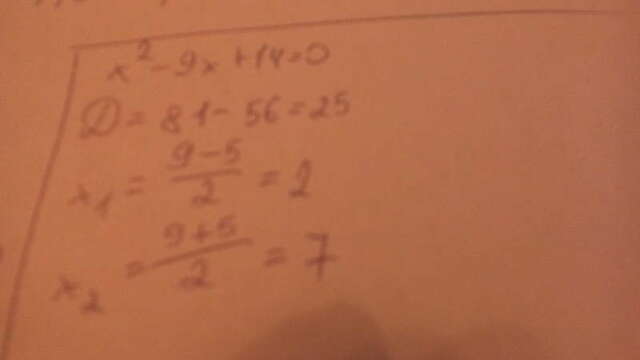 x² - 9x + 14 = 0
D = 81 - 56 = 25
x₁ = (9 - 5)/2 = 2
x₂ = (9 + 5)/2 = 7